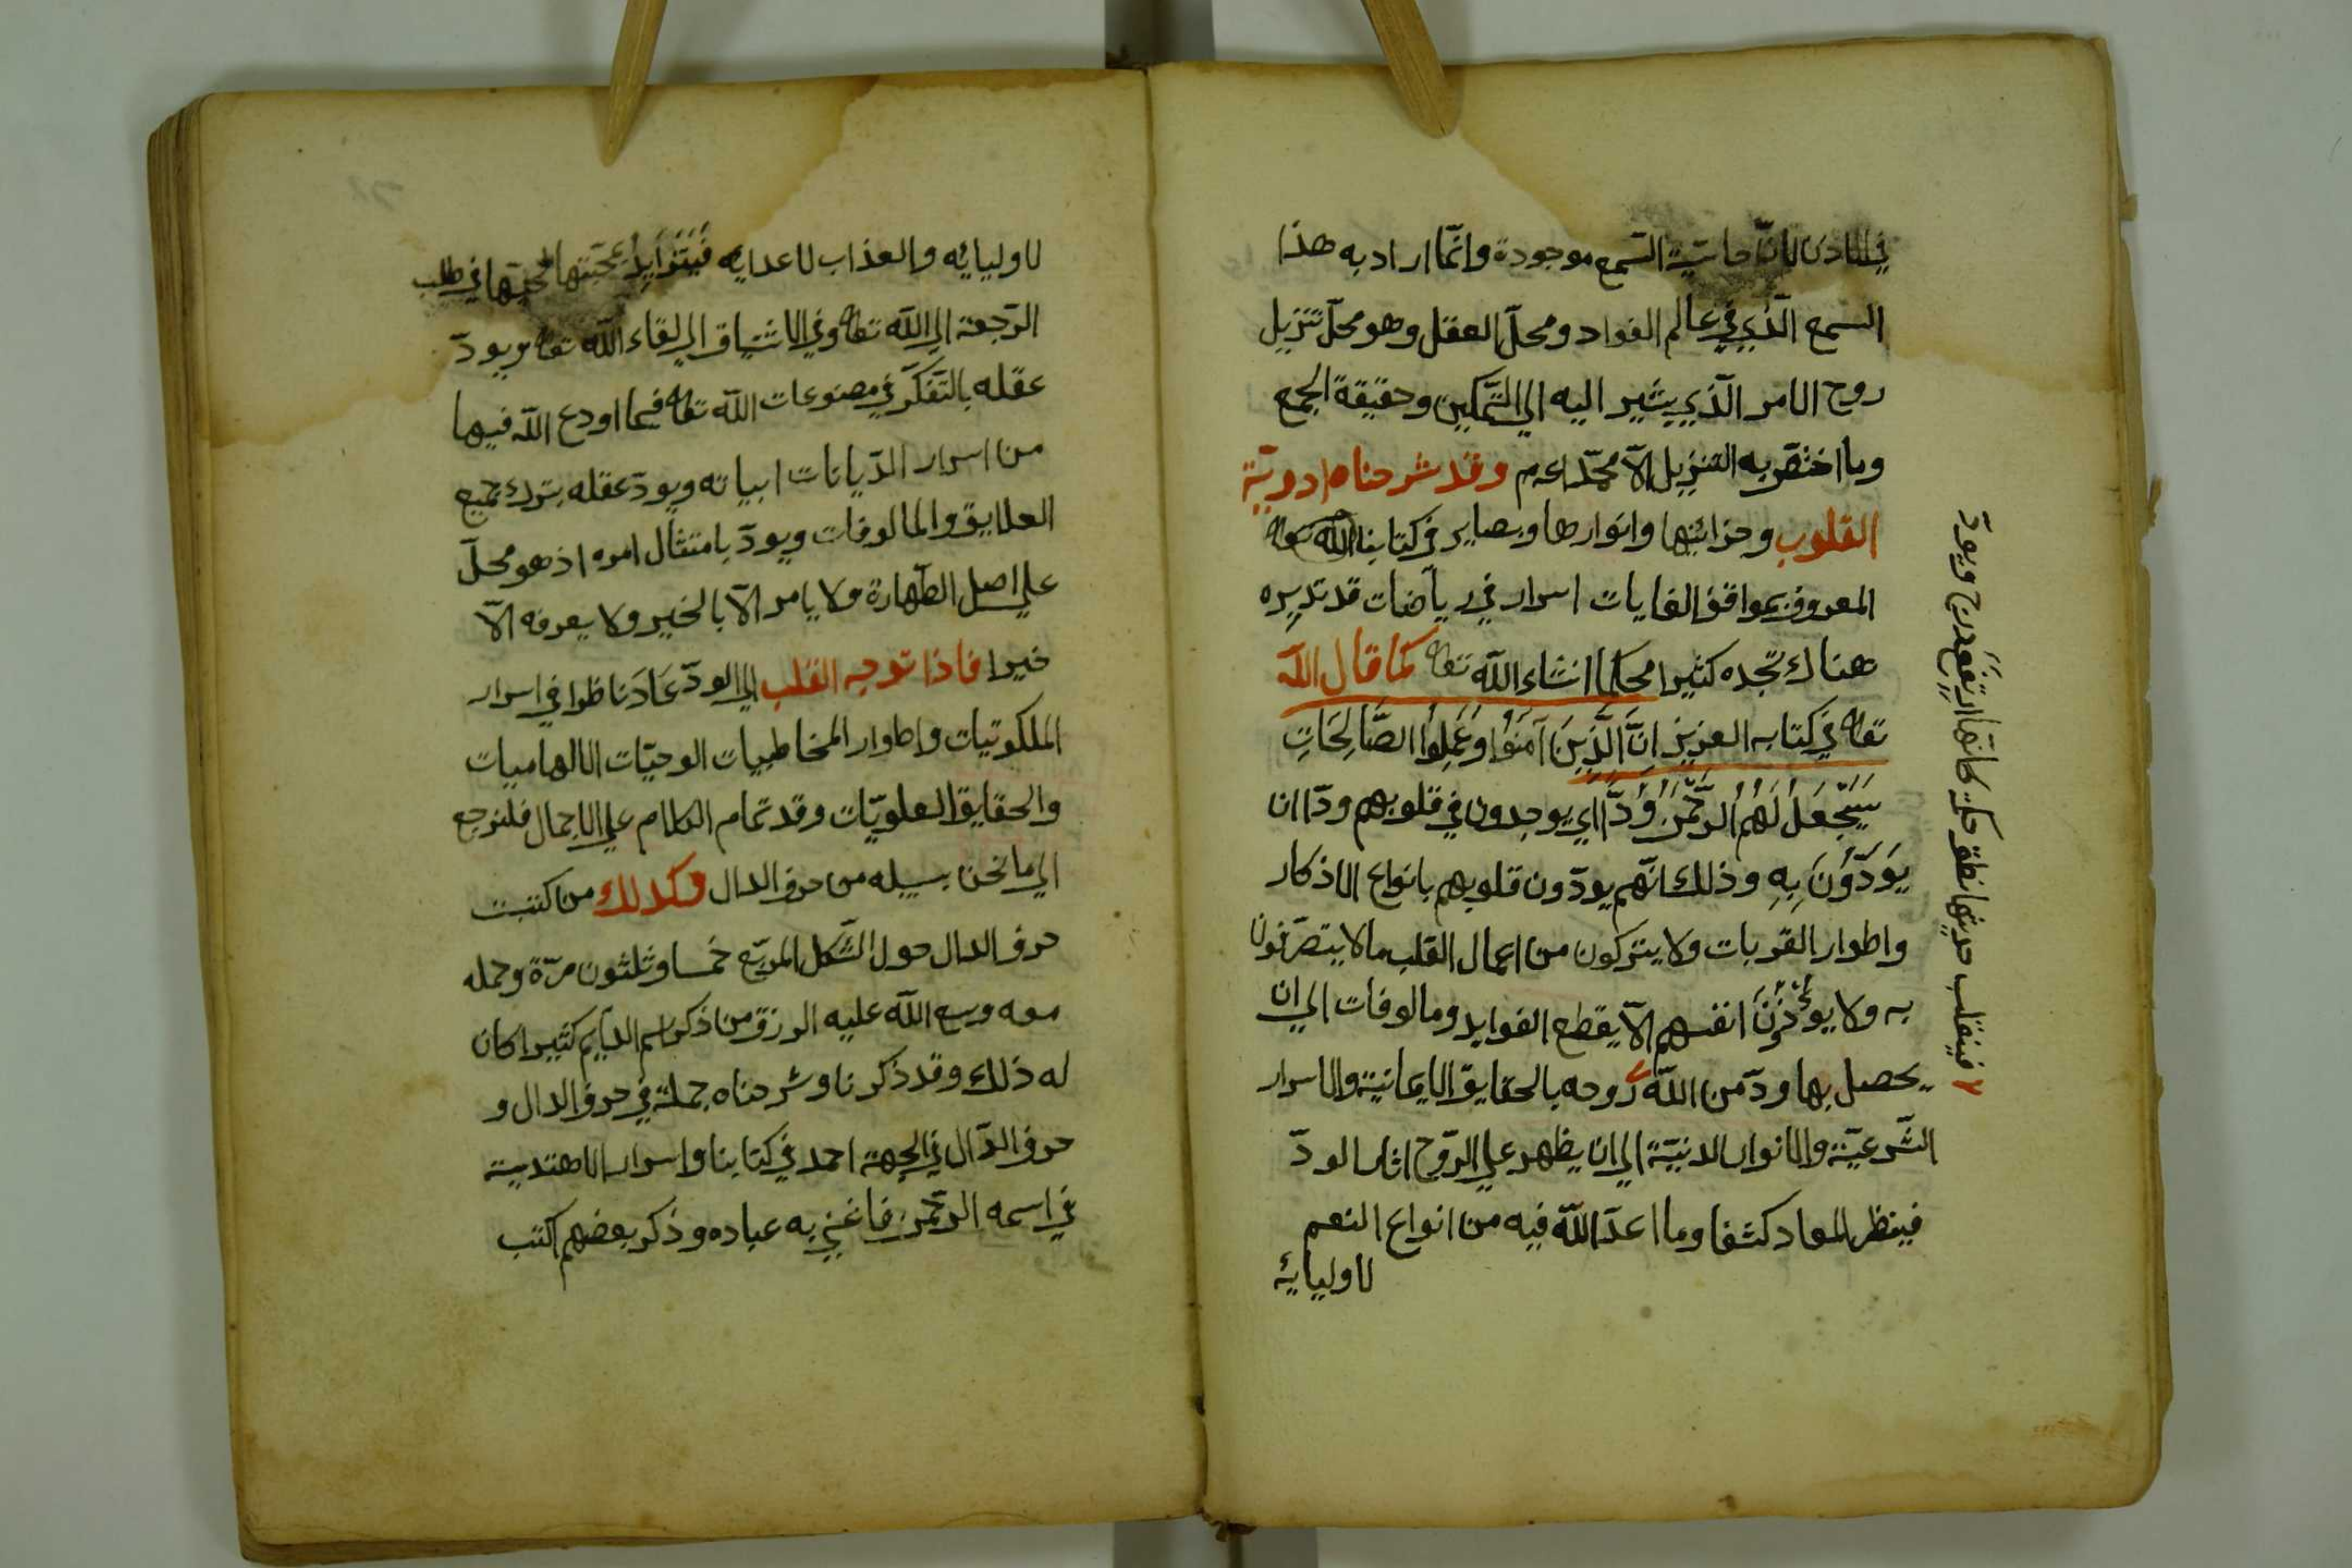 في الاذن لانّ حاسّية السّمع موجودة وانّما اراد به هذا
السمع الّذي في عالم الفواد ومحلّ العقل وهو محلّ تنزيل
روح الامر الّذي يشير اليه الي التّمكين وحقيقة الجمع
وما اختصّ به التنزيل الّا محمّدا عم وقد شرحناه ادويّة
القلوب وخزائنها وانوارها وبصاير في كتابنا
المعروف بمواقف الغايات اسرار في رياضات قد تدبره
هناك تجده كثيرا محكما انشاء الله تعا كما قال الله
تعا في كتابه العزيز انَّ الَّذِينَ آمَنُوا وَعَمِلُوا الصَّالِحَاتِ
سَيَجْعَلُ لَهُمُ الرَّحْمَنُ وُدًّا اي يوجدون في قلوبهم ودّا ان
يَوَدُّونَ بِهِ وذلك انّهم يودّون قلوبهم بانواع الاذكار
واطوار القربات ولا يتركون من اعمال القلب ما لا يتصرّفون
به ولا انفسهم الّا يقطع الفوايد ومالوفات الي ان
يحصل بها ودّ من الله روحه بالحقايق الايمانية والاسرار
الشّرعيّة والانوار الدنيّة الي ان يظهر علي الرّوح اثار الودّ
فينظر المعاد كشفا وما اعدّ الله فيه من انواع النعم
لاوليائه
٢ فينقلب حديثها نطق حكمة ويودّ
لاوليائه والعذاب لاعدايه فَيَتَزَايَدُ محبّتها في طلب
الرّجعة الي الله تعا وفي الاشتياق الي لقاء الله تعا ويودّ
عقله بالتّفكّر في مصنوعات الله تعا فيما اودع الله فيها
من اسرار الدّيانات ويودّ عقله بترك جميع
العلايق والمالوفات ويودّ بامتثال امره اذ هو محلّ
علي اصل الطّهارة ولا يامر الّا بالخير ولا يعرفه الّا
خيرا فاذا توجه القلب الي الودّ عَادَ ناظرا في اسرار
الملكوتيات واطوار المخاطبيات الوحيّات الالهاميات
والحقايق العلويّات وقد تمام الكلام علي الاجمال فلنرجع
الي ما نحن بسبيله من حرف الدال وكذلك من كتبت
حرف الدال حول الشّكل المربّع خمسا وثلثون مرّة وحمله
معه وسع الله عليه الرزق من ذكر اسم الدّايم كثيرا كان
له ذلك وقد ذكرنا وشرحناه جملة في حرف الدال و
حرف الدّال في الجهة احمد في كتابنا واسرار الاهتديية
في اسمه الرحمن فاغني به عباده وذكر بعضهم اكتب